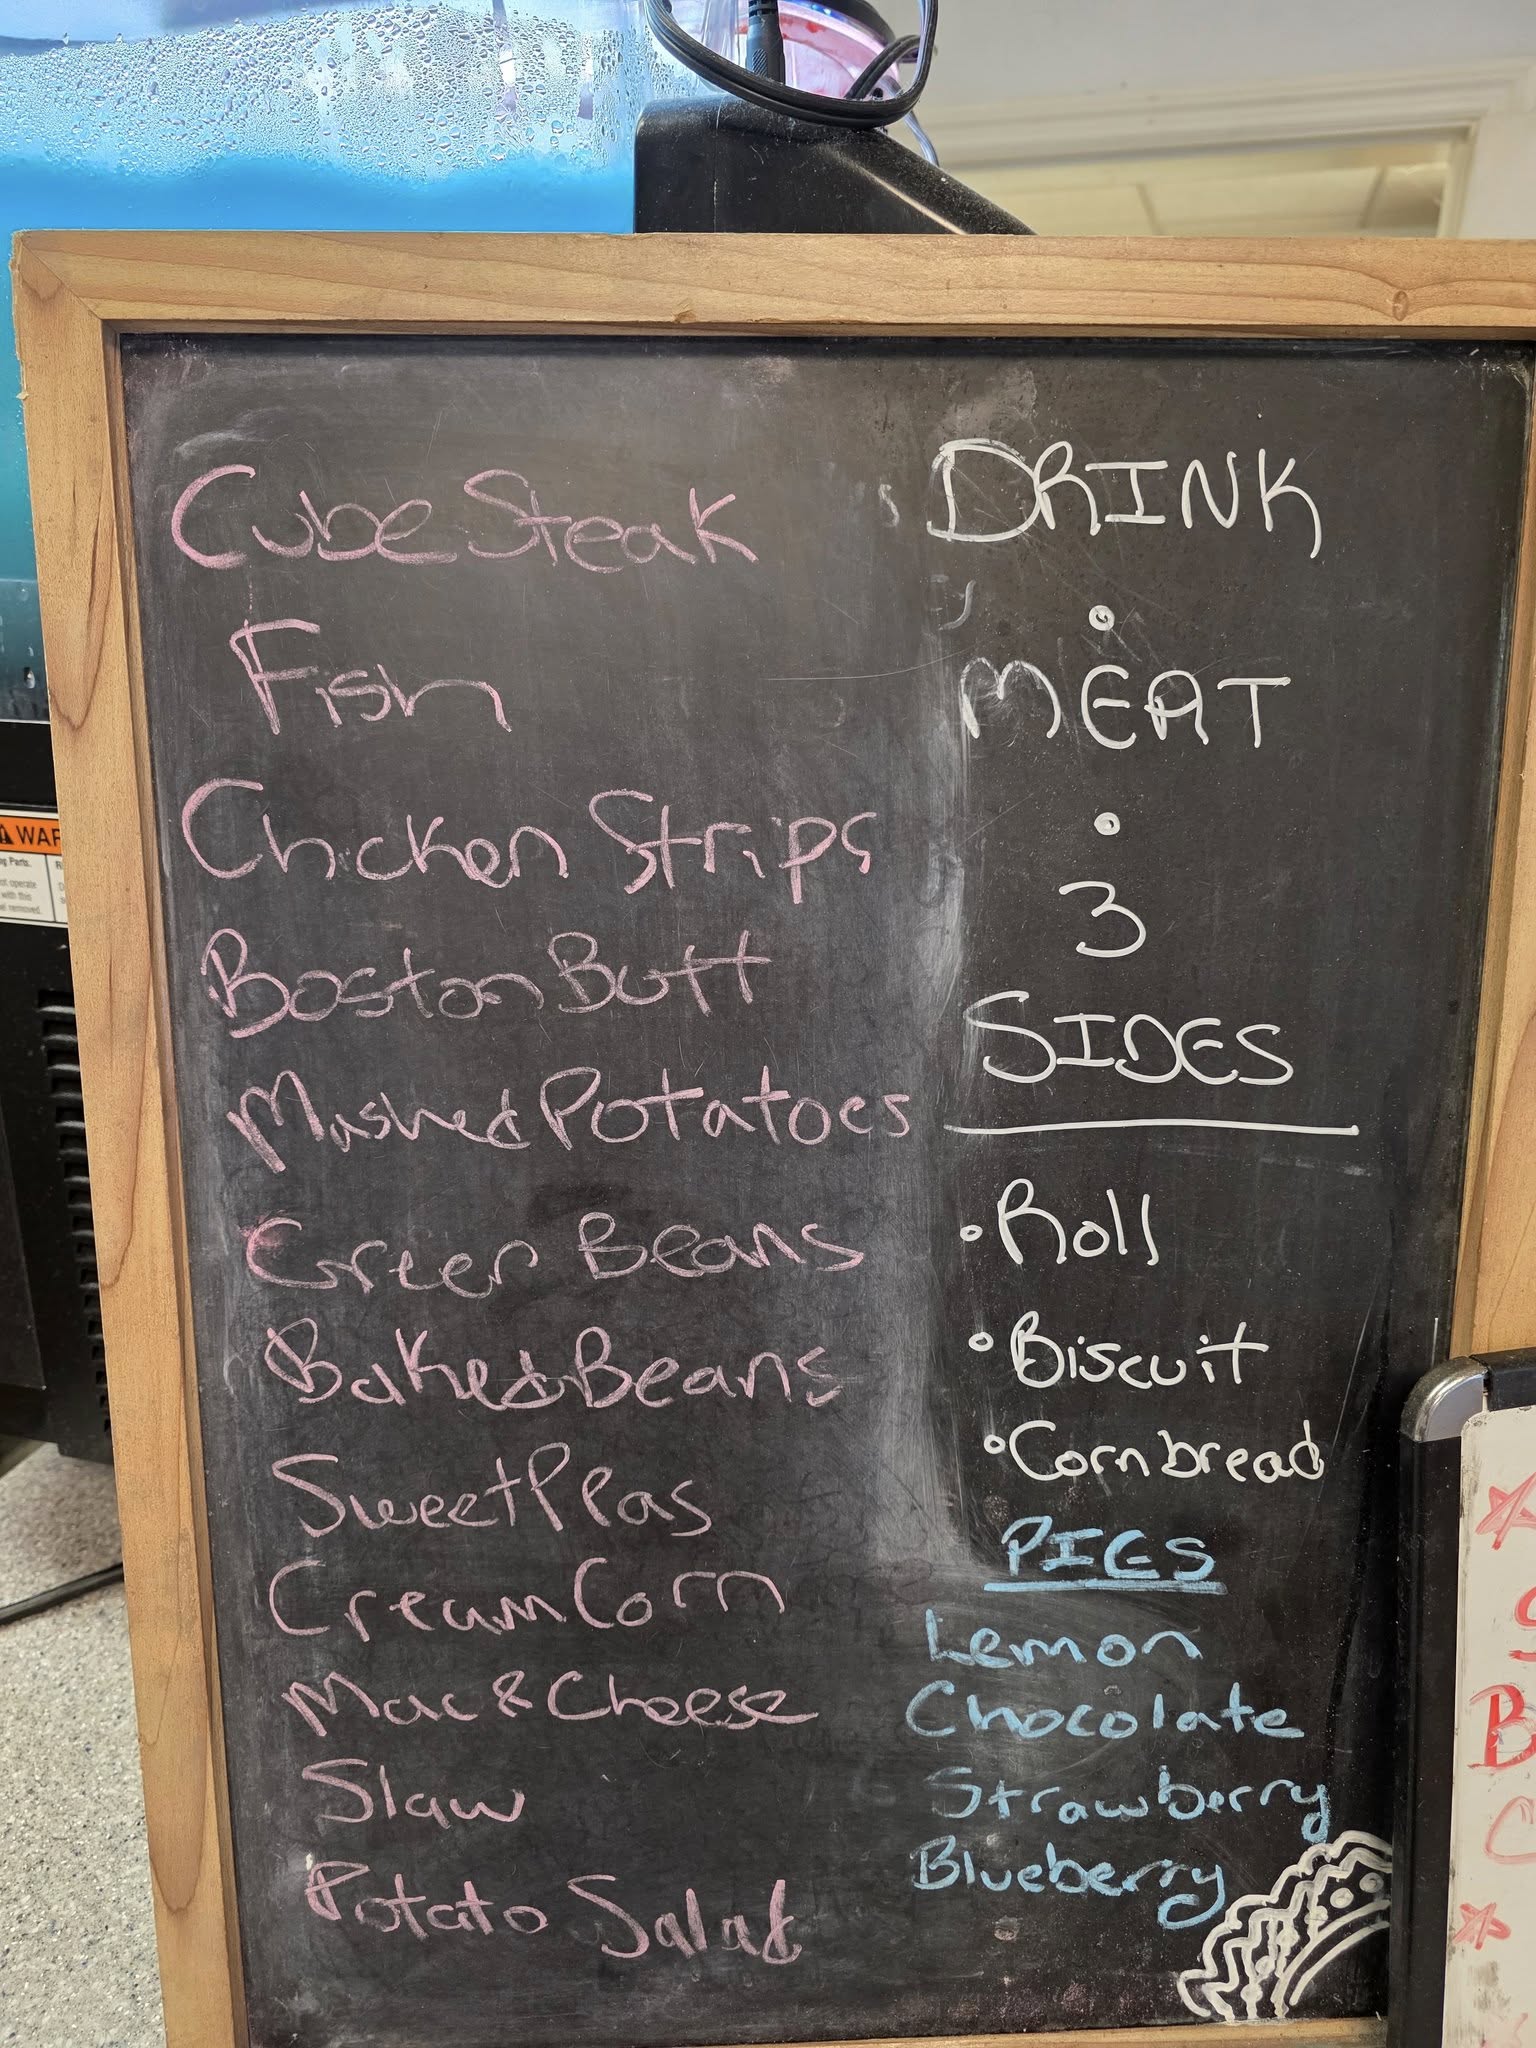 Cube Steak
Fish
Chicken Strips
Boston Butt
Mashed Potatoes
Green Beans
Baked Beans
Sweet Peas
Cream Corn
Mac & Cheese
Slaw
Potato Salad
DRINK
•
MEAT
•
3
SIDES
• Roll
• Biscuit
• Cornbread
PIES
Lemon
Chocolate
Strawberry
Blueberry